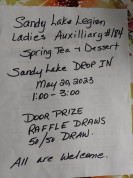 Sandy Lake Legion
Ladies Auxilliary #184
Spring Tea & Dessert
Sandy Lake DROP IN
May 20, 2023
1:00 - 3:00
DOOR PRIZE
RAFFLE DRAWS
50/50 DRAW.
All are Welcome.